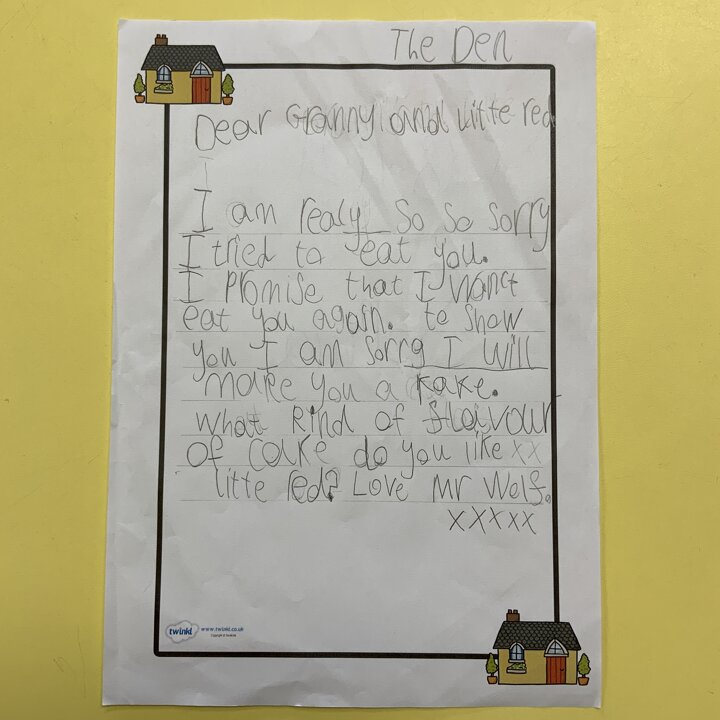 The Den
Dear Granny and Litte red
I am realy so so sorry
I tried to eat you.
I Promise that I wont
eat you again. to show
you I am sorry I will
make you a kake.
what kind of flavour
of cake do you like xx
litte red? Love Mr Wolf.
xxxxx
twinkl www.twinkl.co.uk